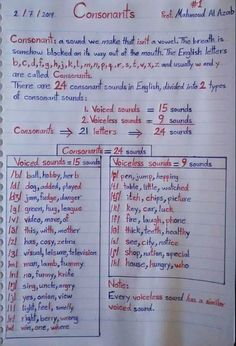 #1
2/7/2019 Consonants Prof. Mahmoud Al Azab
Consonants: a sound we make that isn't a vowel. The breath is
somehow blocked on its way out of the mouth. The English letters
b, c, d, f, g, h, j, k, l, m, n, p, q, r, s, t, v, x, z and usually w and y
are called Consonants.
There are 24 consonant sounds in English, divided into 2 types
of consonant sounds:
1. Voiced sounds = 15 sounds
2. Voiceless sounds = 9 sounds
Consonants → 21 letters → 24 sounds
Consonants = 24 sounds
Voiced sounds = 15 sounds
/b/ ball, hobby, herb
/d/ dog, added, played
/dʒ/ jam, fudge, danger
/g/ green, hug, league
/v/ video, move, of
/ð/ this, with, mother
/z/ has, cosy, zebra
/ʒ/ visual, leisure, television
/m/ man, lamb, tummy
/n/ no, funny, knife
/ŋ/ sing, uncle, angry
/j/ yes, onion, view
/l/ light, feel, smelly
/r/ right, berry, wrong
/w/ win, one, where
Voiceless sounds = 9 sounds
/p/ pen, jump, hopping
/t/ table, little, watched
/tʃ/ itch, chips, picture
/k/ key, car, luck
/f/ fire, laugh, phone
/θ/ thick, tenth, healthy
/s/ see, city, notice
/ʃ/ shop, nation, special
/h/ house, hungry, who
Note:
Every voiceless sound has a similar
voiced sound.